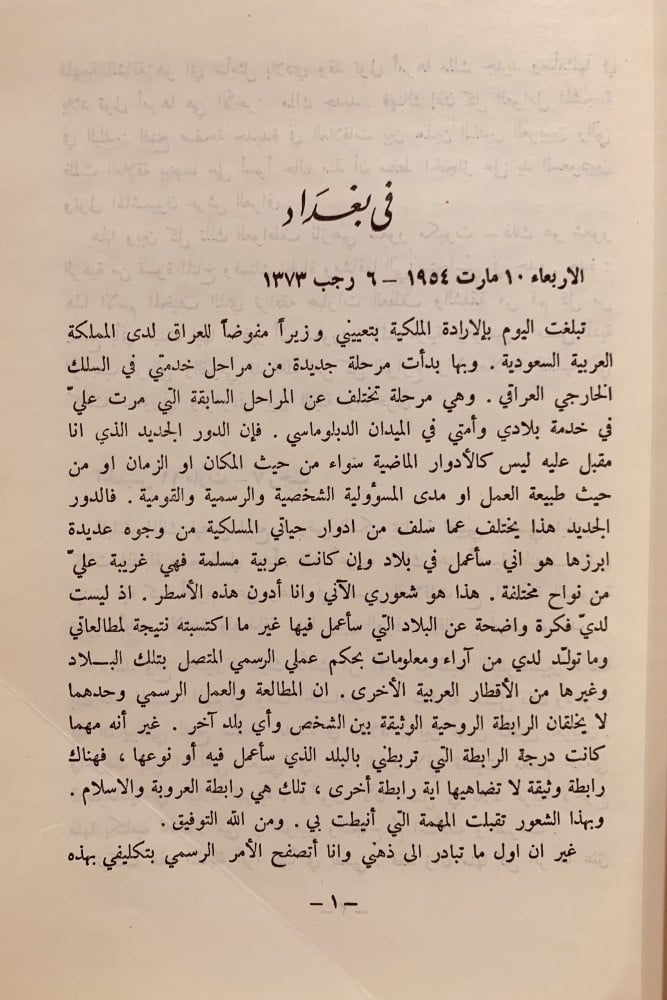 في بغداد
الاربعاء ١٠ مارت ١٩٥٤ – ٦ رجب ١٣٧٣
تبلغت اليوم بإلارادة الملكية بتعييني وزيراً مفوضاً للعراق لدى المملكة
العربية السعودية . وبها بدأت مرحلة جديدة من مراحل خدمتي في السلك
الخارجي العراقي . وهي مرحلة تختلف عن المراحل السابقة التي مرت عليّ
في خدمة بلادي وأمتي في الميدان الدبلوماسي . فإن الدور الجديد الذي انا
مقبل عليه ليس كالأدوار الماضية سواء من حيث المكان او الزمان او من
حيث طبيعة العمل او مدى المسؤولية الشخصية والرسمية والقومية . فالدور
الجديد هذا يختلف عما سلف من ادوار حياتي المسلكية من وجوه عديدة
ابرزها هو اني سأعمل في بلاد وإن كانت عربية مسلمة فهي غريبة عليّ
من نواح مختلفة . هذا هو شعوري الآني وانا أدون هذه الأسطر . اذ ليست
لديّ فكرة واضحة عن البلاد التي سأعمل فيها غير ما اكتسبته نتيجة لمطالعاتي
وما تولـّد لدي من آراء ومعلومات بحكم عملي الرسمي المتصل بتلك البـــلاد
وغيرها من الأقطار العربية الأخرى . ان المطالعة والعمل الرسمي وحدهما
لا يخلقان الرابطة الروحية الوثيقة بين الشخص وأي بلد آخر . غير أنه مهما
كانت درجة الرابطة التي تربطني بالبلد الذي سأعمل فيه أو نوعها ، فهناك
رابطة وثيقة لا تضاهيها اية رابطة أخرى ، تلك هي رابطة العروبة والاسلام .
وبهذا الشعور تقبلت المهمة التي أنيطت بي . ومن الله التوفيق .
غير ان اول ما تبادر الى ذهني وانا أتصفح الأمر الرسمي بتكليفي بهذه
– ١ –